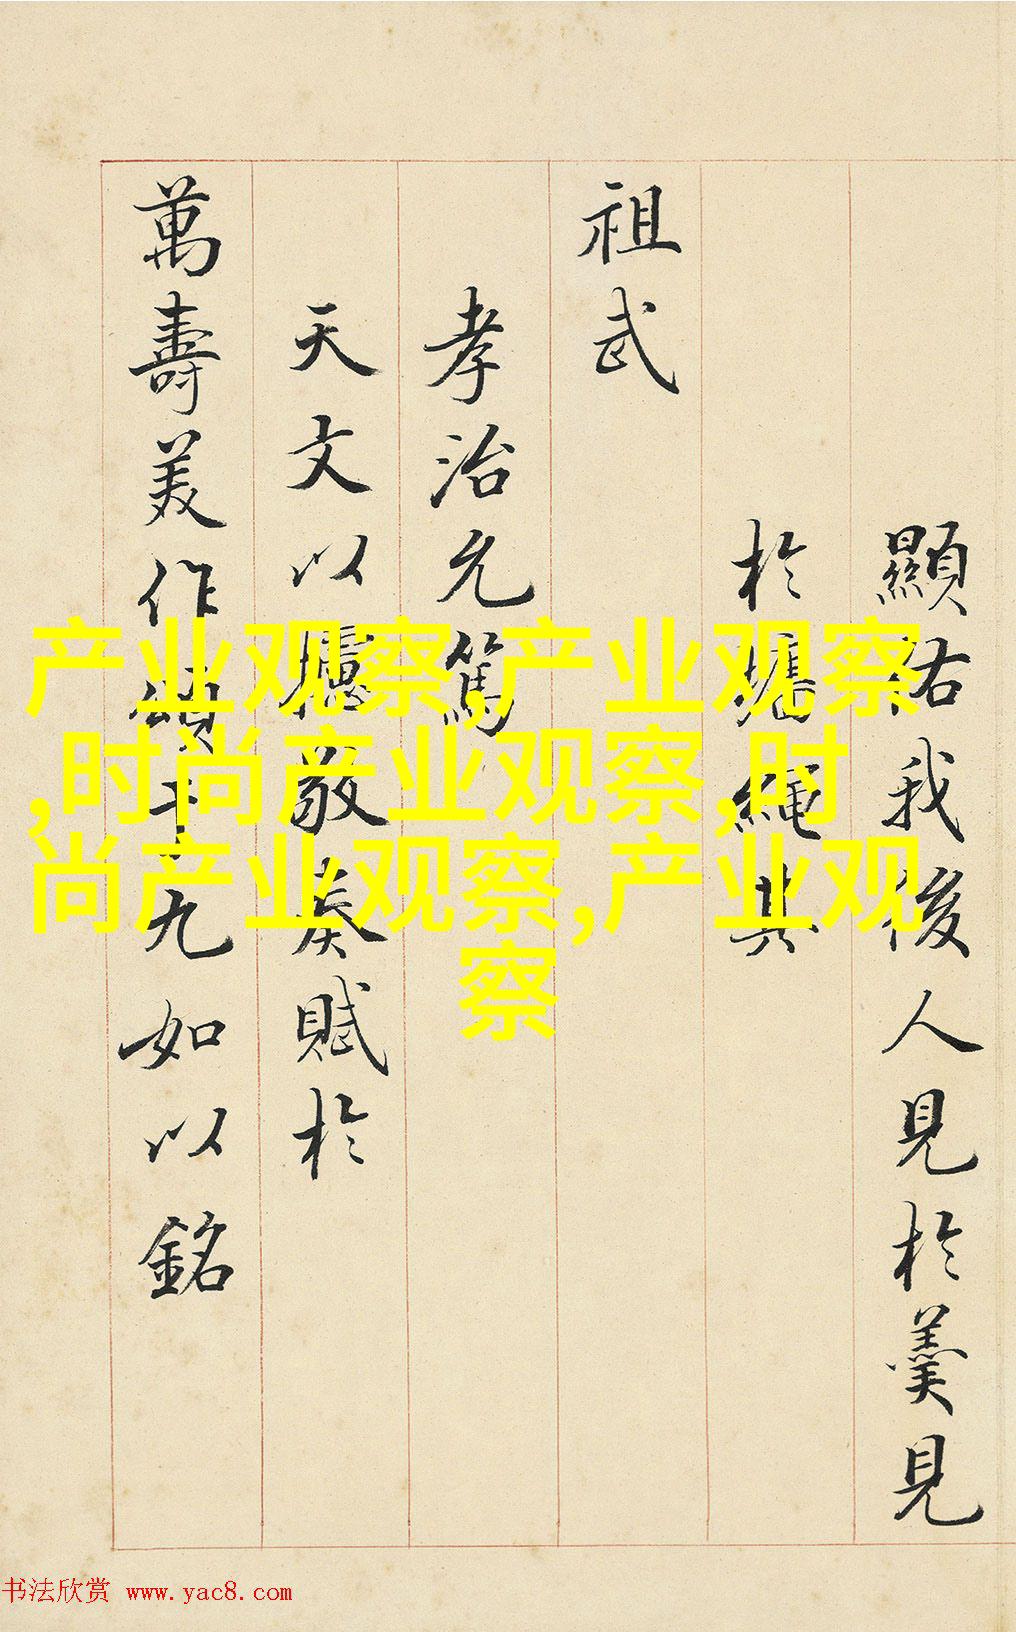 顯佑我後人見於羹見
於牆繩其
祖武
孝治允篤
天文以攄敬奏賦於
萬壽美作頌十九如以銘
产业观察,产业观察
,时尚产业观察,时
尚产业观察,产业观
察
书法欣赏 www.yac8.com